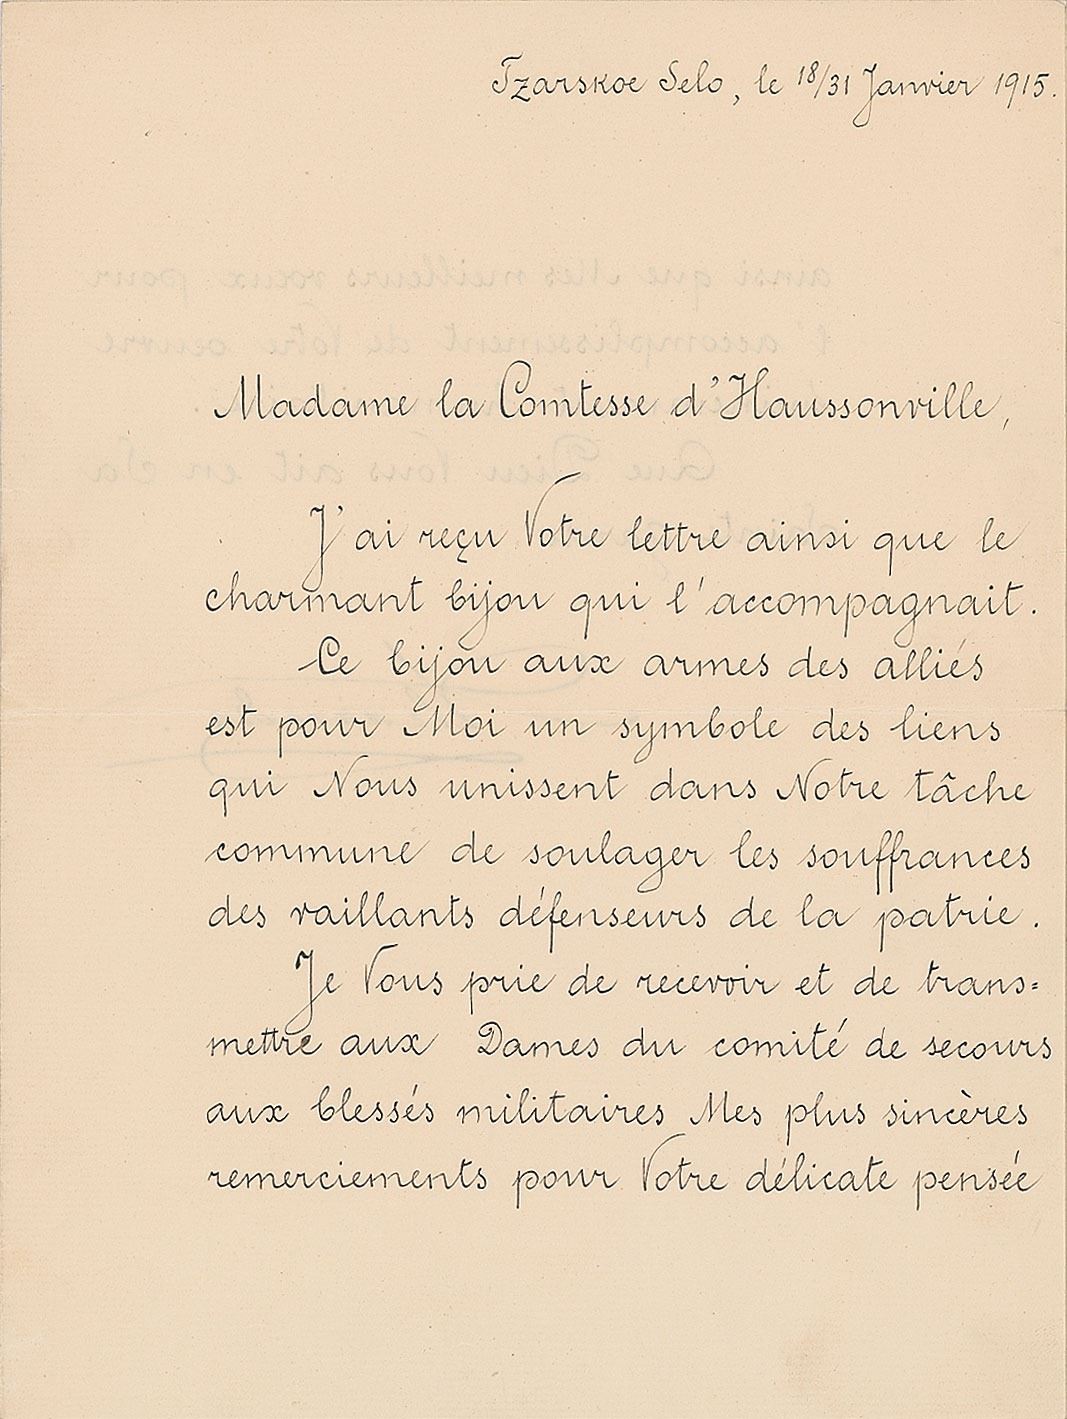 Tzarskoe Selo, le 18/31 Janvier 1915.
Madame la Comtesse d'Haussonville,
J'ai reçu Votre lettre ainsi que le
charmant bijou qui l'accompagnait.
Ce bijou aux armes des alliés
est pour Moi un symbole des liens
qui Nous unissent dans Notre tâche
commune de soulager les souffrances
des vaillants défenseurs de la patrie.
Je Vous prie de recevoir et de trans=
mettre aux Dames du comité de secours
aux blessés militaires Mes plus sincères
remerciements pour Votre délicate pensée
ainsi que Mes meilleurs vœux pour
l'accomplissement de Votre œuvre
Que Dieu Vous ait en Sa